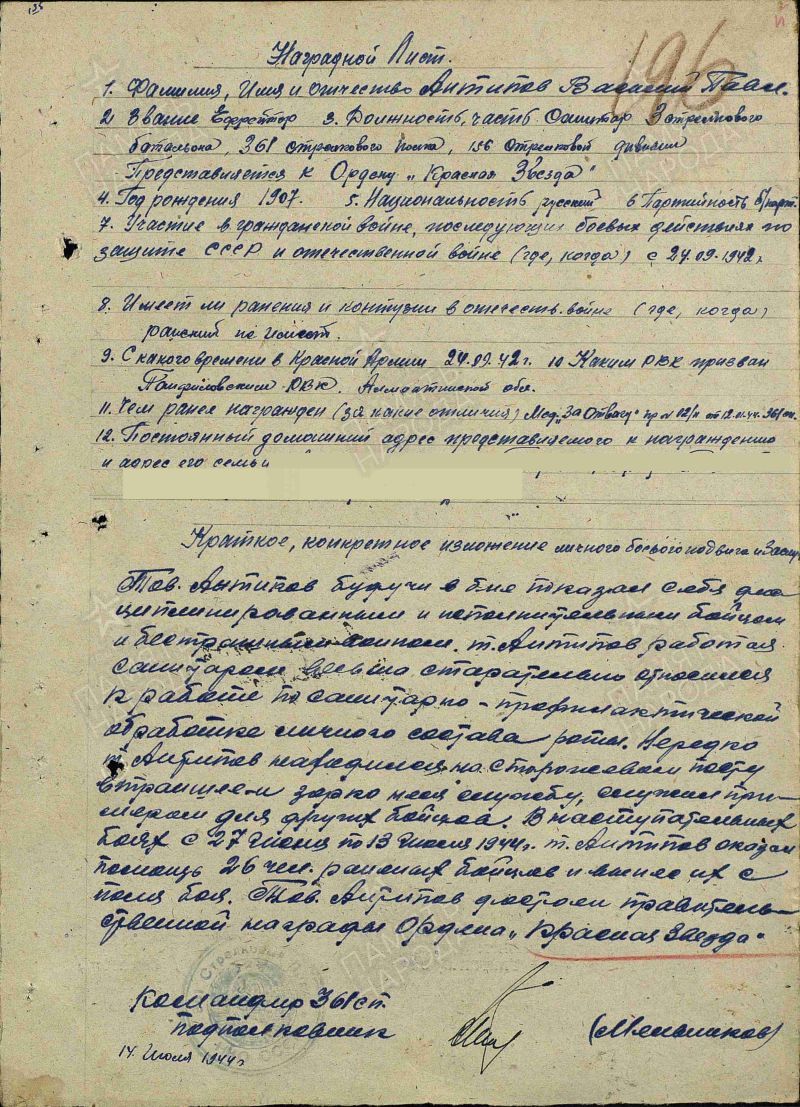 196
Наградной Лист.
1. Фамилия, Имя и отчество Антипов Василий Павл.
2 Звание Ефрейтор 3. Должность, часть Санитар 3 стрелкового
батальона, 361 стрелкового полка, 156 стрелковой дивизии
Представляется к Ордену „Красная Звезда"
4. Год рождения 1907. 5. Национальность русский 6 Партийность б/парт.
7. Участие в гражданской войне, последующих боевых действиях по
защите СССР и отечественной войне (где, когда) с 24.09.1942 г.
8. Имеет ли ранения и контузии в отечеств. войне (где, когда)
ранений не имеет.
9. С какого времени в Красной Армии 24.09.42 г. 10 Каким РВК призван
Панфиловским РВК Алмаатинской обл.
11. Чем ранее награжден (за какие отличия) Мед. „За Отвагу" пр №02/н от 361 сп.
12. Постоянный домашний адрес представляемого к награждению
и адрес его семьи
Краткое, конкретное изложение личного боевого подвига и заслуг
Тов. Антипов будучи в бою показал себя дис
циплинированным и исполнительным бойцом
и бесстрашным воином. т. Антипов работая
санитаром весьма старательно относился
к работе по санитарно-профилактической
обработке личного состава роты. Нередко
т. Антипов находился на сторожевом посту
в траншеях зорко неся службу, служил при-
мером для других бойцов. В наступательных
боях с 27 июня по 13 июля 1944 г. т. Антипов оказал
помощь 26 чел. раненых бойцов и вынес их с
поля боя. Тов. Антипов достоин правитель-
ственной награды Ордена „Красная Звезда"
Командир 361 сп.
подполковник (Мельников)
14. Июля 1944 г
ПАМЯТЬ НАРОДА